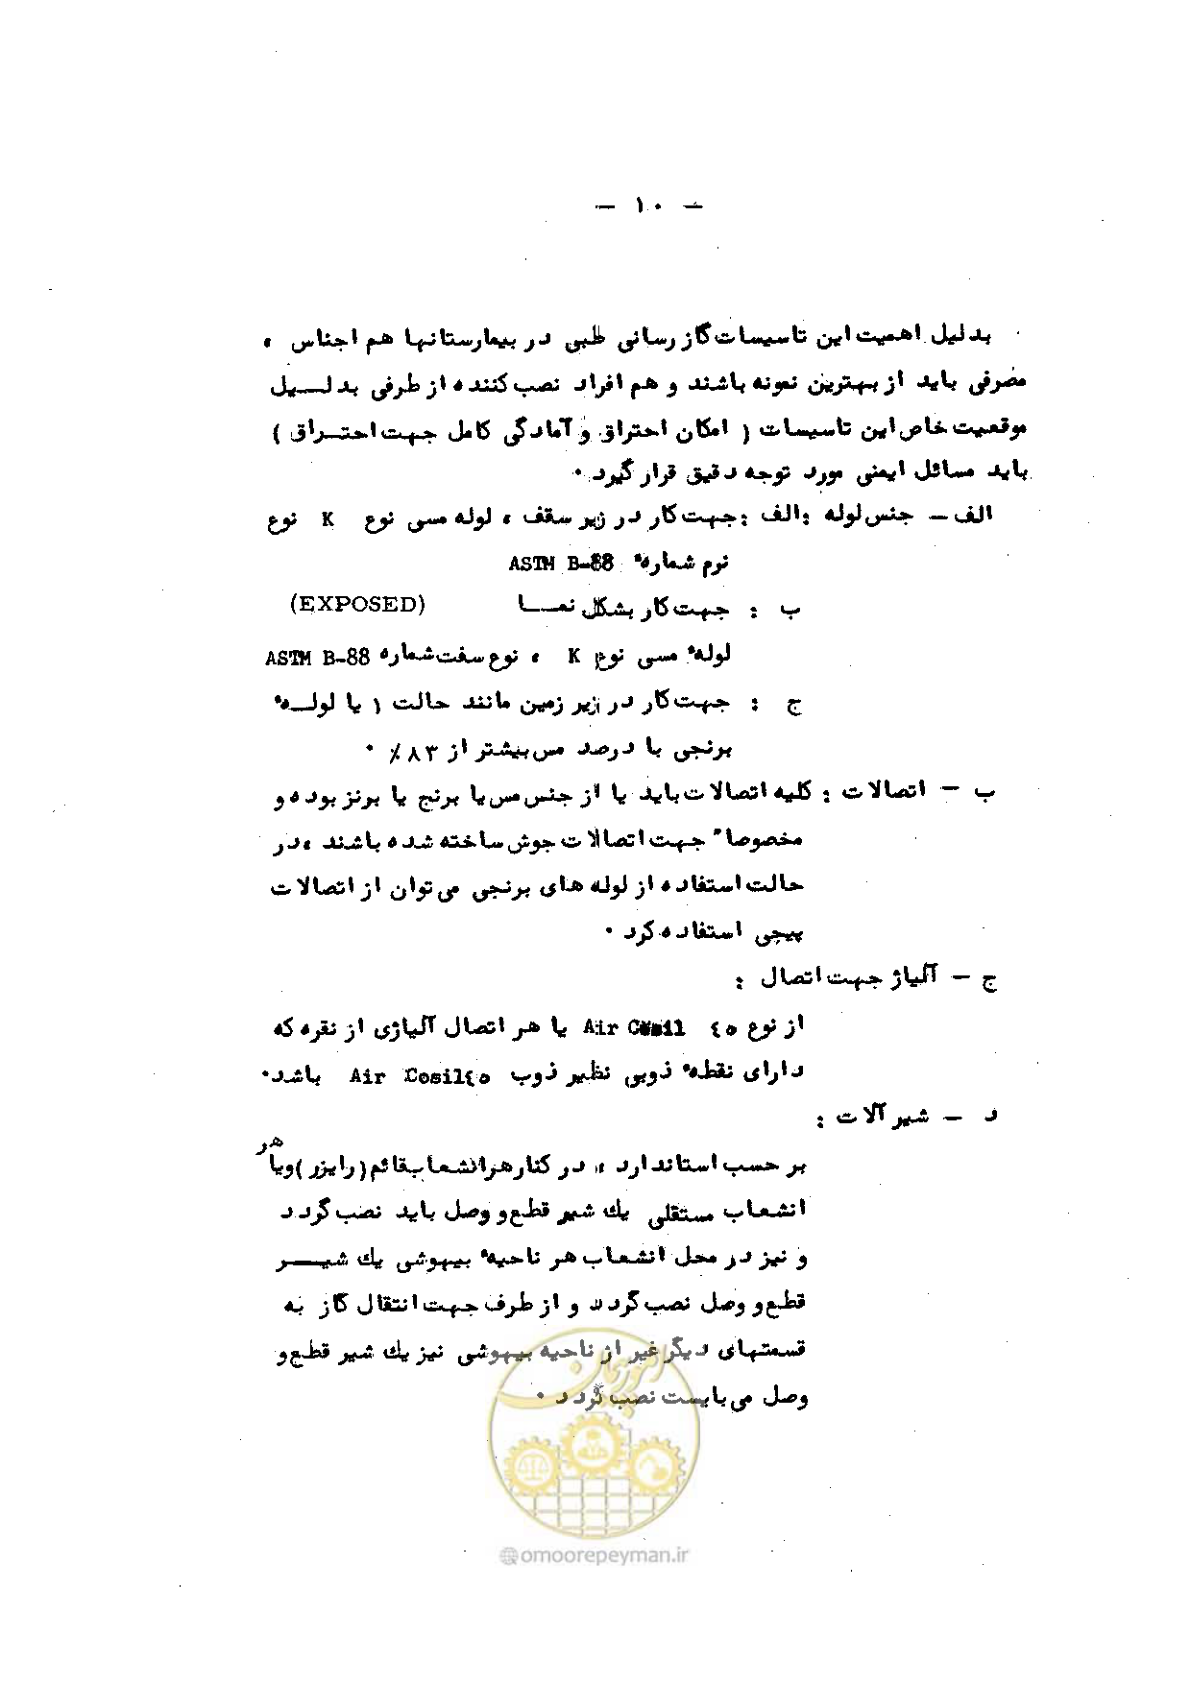 – ۱۰ –
بدلیل اهمیت این تاسیسات گاز رسانی طبی در بیمارستانها هم اجناس ،
مصرفی باید از بهترین نمونه باشند و هم افراد نصب کننده از طرفی بدلیل
موقعیت خاص این تاسیسات ( امکان احتراق و آمادگی کامل جهت احتراق )
باید مسائل ایمنی مورد توجه دقیق قرار گیرد .
الف – جنس لوله : الف : جهت کار در زیر سقف ، لوله مسی نوع K نوع
نرم شماره ASTM B-88
ب : جهت کار بشکل نما (EXPOSED)
لولهٔ مسی نوع K ، نوع سفت شماره ASTM B-88
ج : جهت کار در زیر زمین مانند حالت ۱ یا لولهٔ
برنجی با درصد مس بیشتر از ۸۳٪ .
ب – اتصالات : کلیه اتصالات باید یا از جنس مس یا برنج یا برنز بوده و
مخصوصا" جهت اتصالات جوش ساخته شده باشند ، در
حالت استفاده از لوله های برنجی می توان از اتصالات
پیچی استفاده کرد .
ج – آلیاژ جهت اتصال :
از نوع Air Cosil ٤٥ یا هر اتصال آلیاژی از نقره که
دارای نقطهٔ ذوبی نظیر ذوب Air Cosil٤٥ باشد.
د – شیر آلات :
بر حسب استاندارد ، در کنار هر انشعاب قائم (رایزر) و یا هر
انشعاب مستقلی یک شیر قطع و وصل باید نصب گردد
و نیز در محل انشعاب هر ناحیهٔ بیهوشی یک شیر
قطع و وصل نصب گردد و از طرف جهت انتقال گاز به
قسمتهای دیگر غیر از ناحیه بیهوشی نیز یک شیر قطع و
وصل می بایست نصب گردد .
امور پیمان
@omoorepeyman.ir